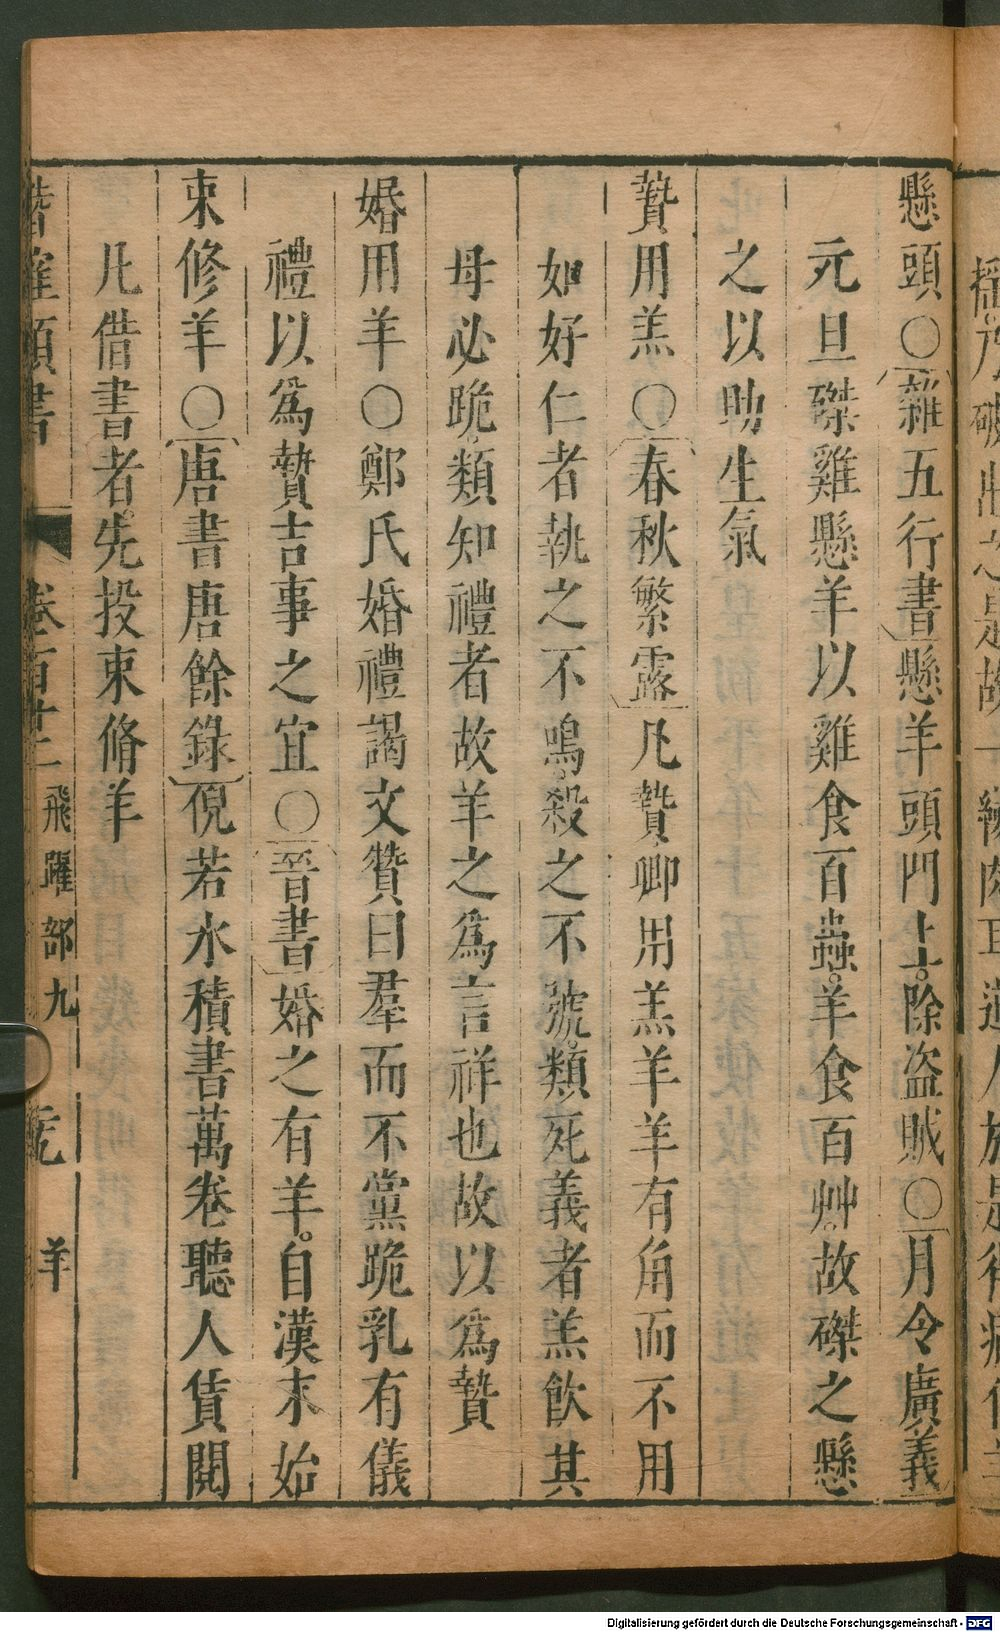 懸頭〇雜五行書懸羊頭門上。除盜賊〇月令廣義
元旦磔雞懸羊以雞食百蟲。羊食百艸。故磔之懸
之以助生氣
贄用羔〇春秋繁露凡贄。卿用羔羊羊有角而不用
如好仁者執之不鳴。殺之不號。類死義者羔飲其
母必跪。類知禮者故羊之為言祥也故以為贄
婚用羊〇鄭氏婚禮謁文贊曰羣而不黨跪乳有儀
禮以為贄吉事之宜〇晉書婚之有羊。自漢末始
束修羊〇唐書唐餘錄倪若水積書萬卷聽人賃閱
凡借書者。先投束脩羊
類書
卷百廿二
飛躍部九
羊
Digitalisierung gefördert durch die Deutsche Forschungsgemeinschaft - DFG